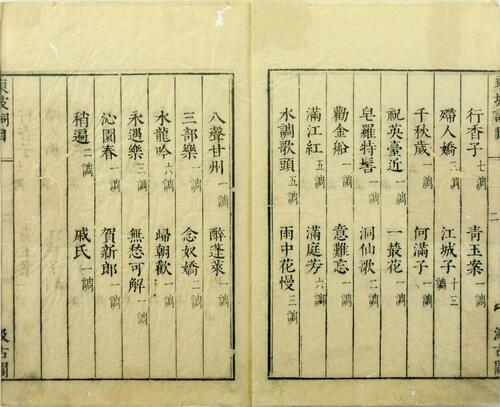 行香子七調 青玉案一調
殢人嬌二調 江城子十三調
千秋歲一調 何滿子一調
祝英臺近一調 一叢花一調
皂羅特髻一調 洞仙歌二調
勸金船一調 意難忘一調
滿江紅五調 滿庭芳六調
水調歌頭五調 雨中花慢三調
八聲甘州一調 醉蓬萊一調
三部樂一調 念奴嬌二調
水龍吟六調 歸朝歡一調
永遇樂三調 無愁可解一調
沁園春一調 賀新郎一調
稍遍二調 戚氏一調
東坡詞目
汲古閣